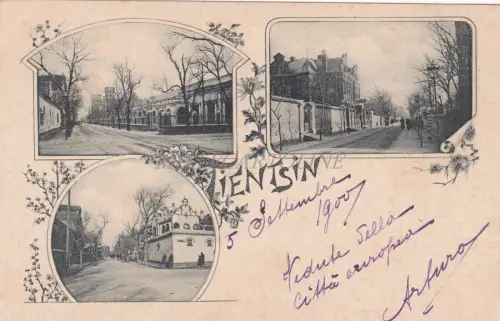 TIENTSIN
5 Settembre
1900
Vedute della
Città europea.
Arturo